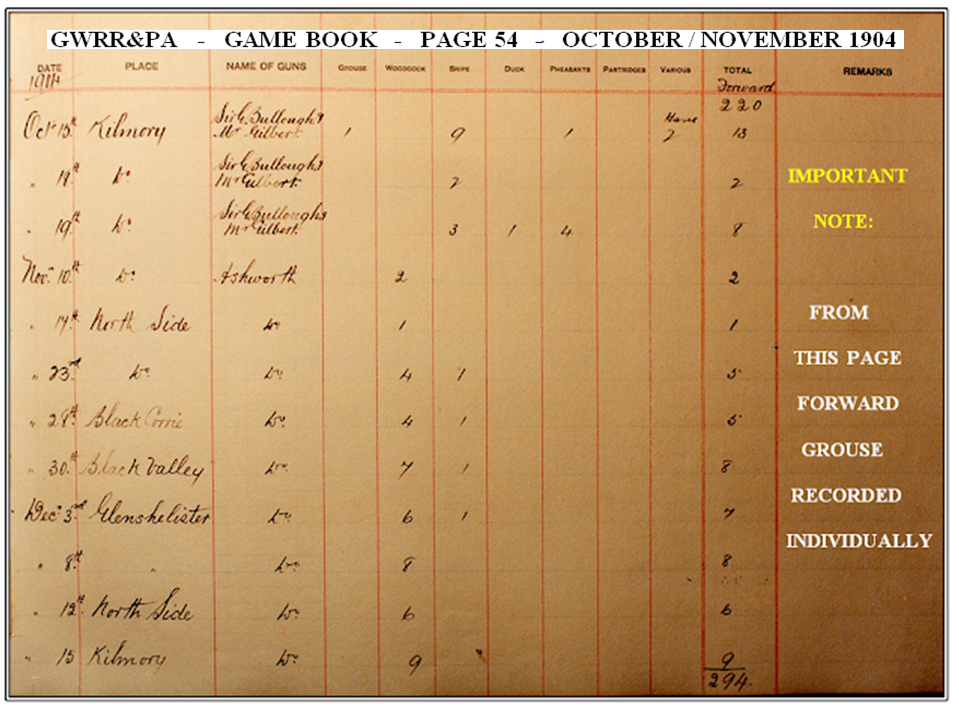 GWRR&PA - GAME BOOK - PAGE 54 - OCTOBER / NOVEMBER 1904
DATE PLACE NAME OF GUNS GROUSE WOODCOCK SNIPE DUCK PHEASANTS PARTRIDGES VARIOUS TOTAL REMARKS
1904 Forward
220
Sir G Bullough & Hare
Octr 15th Kilmory Mr Gilbert. 1 9 1 2 13
Sir G Bullough &
" 18th Do Mr Gilbert. 2 2
Sir G Bullough &
" 19th Do Mr Gilbert. 3 1 4 8
Novr 10th Do Ashworth 2 2
" 17th North Side Do 1 1
" 23rd Do Do 4 1 5
" 28th Black Corrie Do 4 1 5
" 30th Black Valley Do 7 1 8
Decr 3rd Glenshelister Do 6 1 7
" 8th " Do 8 8
" 12th North Side Do 6 6
" 15 Kilmory Do 9 9
294.
IMPORTANT
NOTE:
FROM
THIS PAGE
FORWARD
GROUSE
RECORDED
INDIVIDUALLY